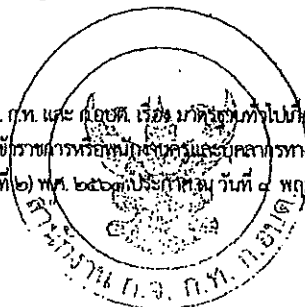 ก.ท. และ ก.อบต. เรื่อง มาตรฐานทั่วไปเกี่
ข้าราชการหรือพนักงานครูและบุคลากรทา
ที่ ๒) พ.ศ. ๒๕๖๓ ประกาศ ณ วันที่ ๘ พฤ
สำนักงาน ก.จ. ก.ท. ก.อบต.